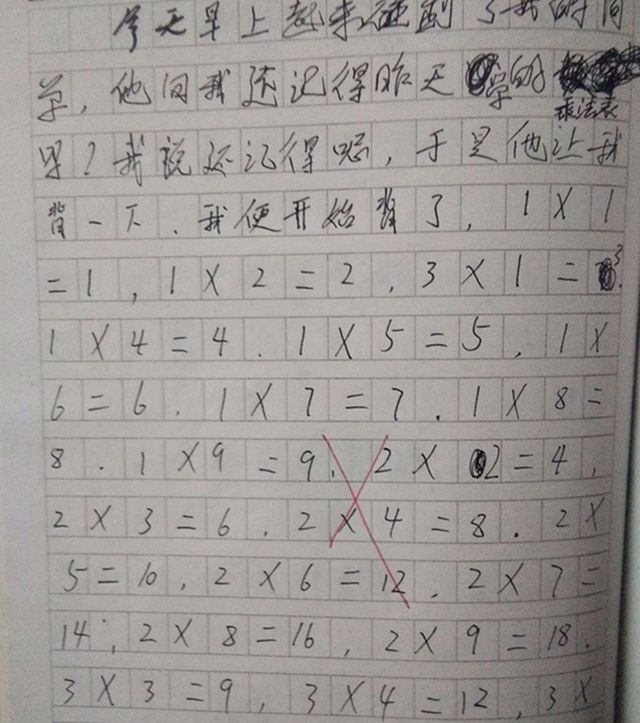 今天早上起来碰到了我的同
学，他问我还记得昨天学的乘法表
里？我说还记得呢，于是他让我
背一下．我便开始背了，1×1
=1，1×2=2．3×1=3．
1×4=4．1×5=5．1×
6=6．1×7=7．1×8=
8．1×9=9．2×2=4，
2×3=6．2×4=8．2×
5=10．2×6=12．2×7=
14，2×8=16，2×9=18．
3×3=9，3×4=12，3×